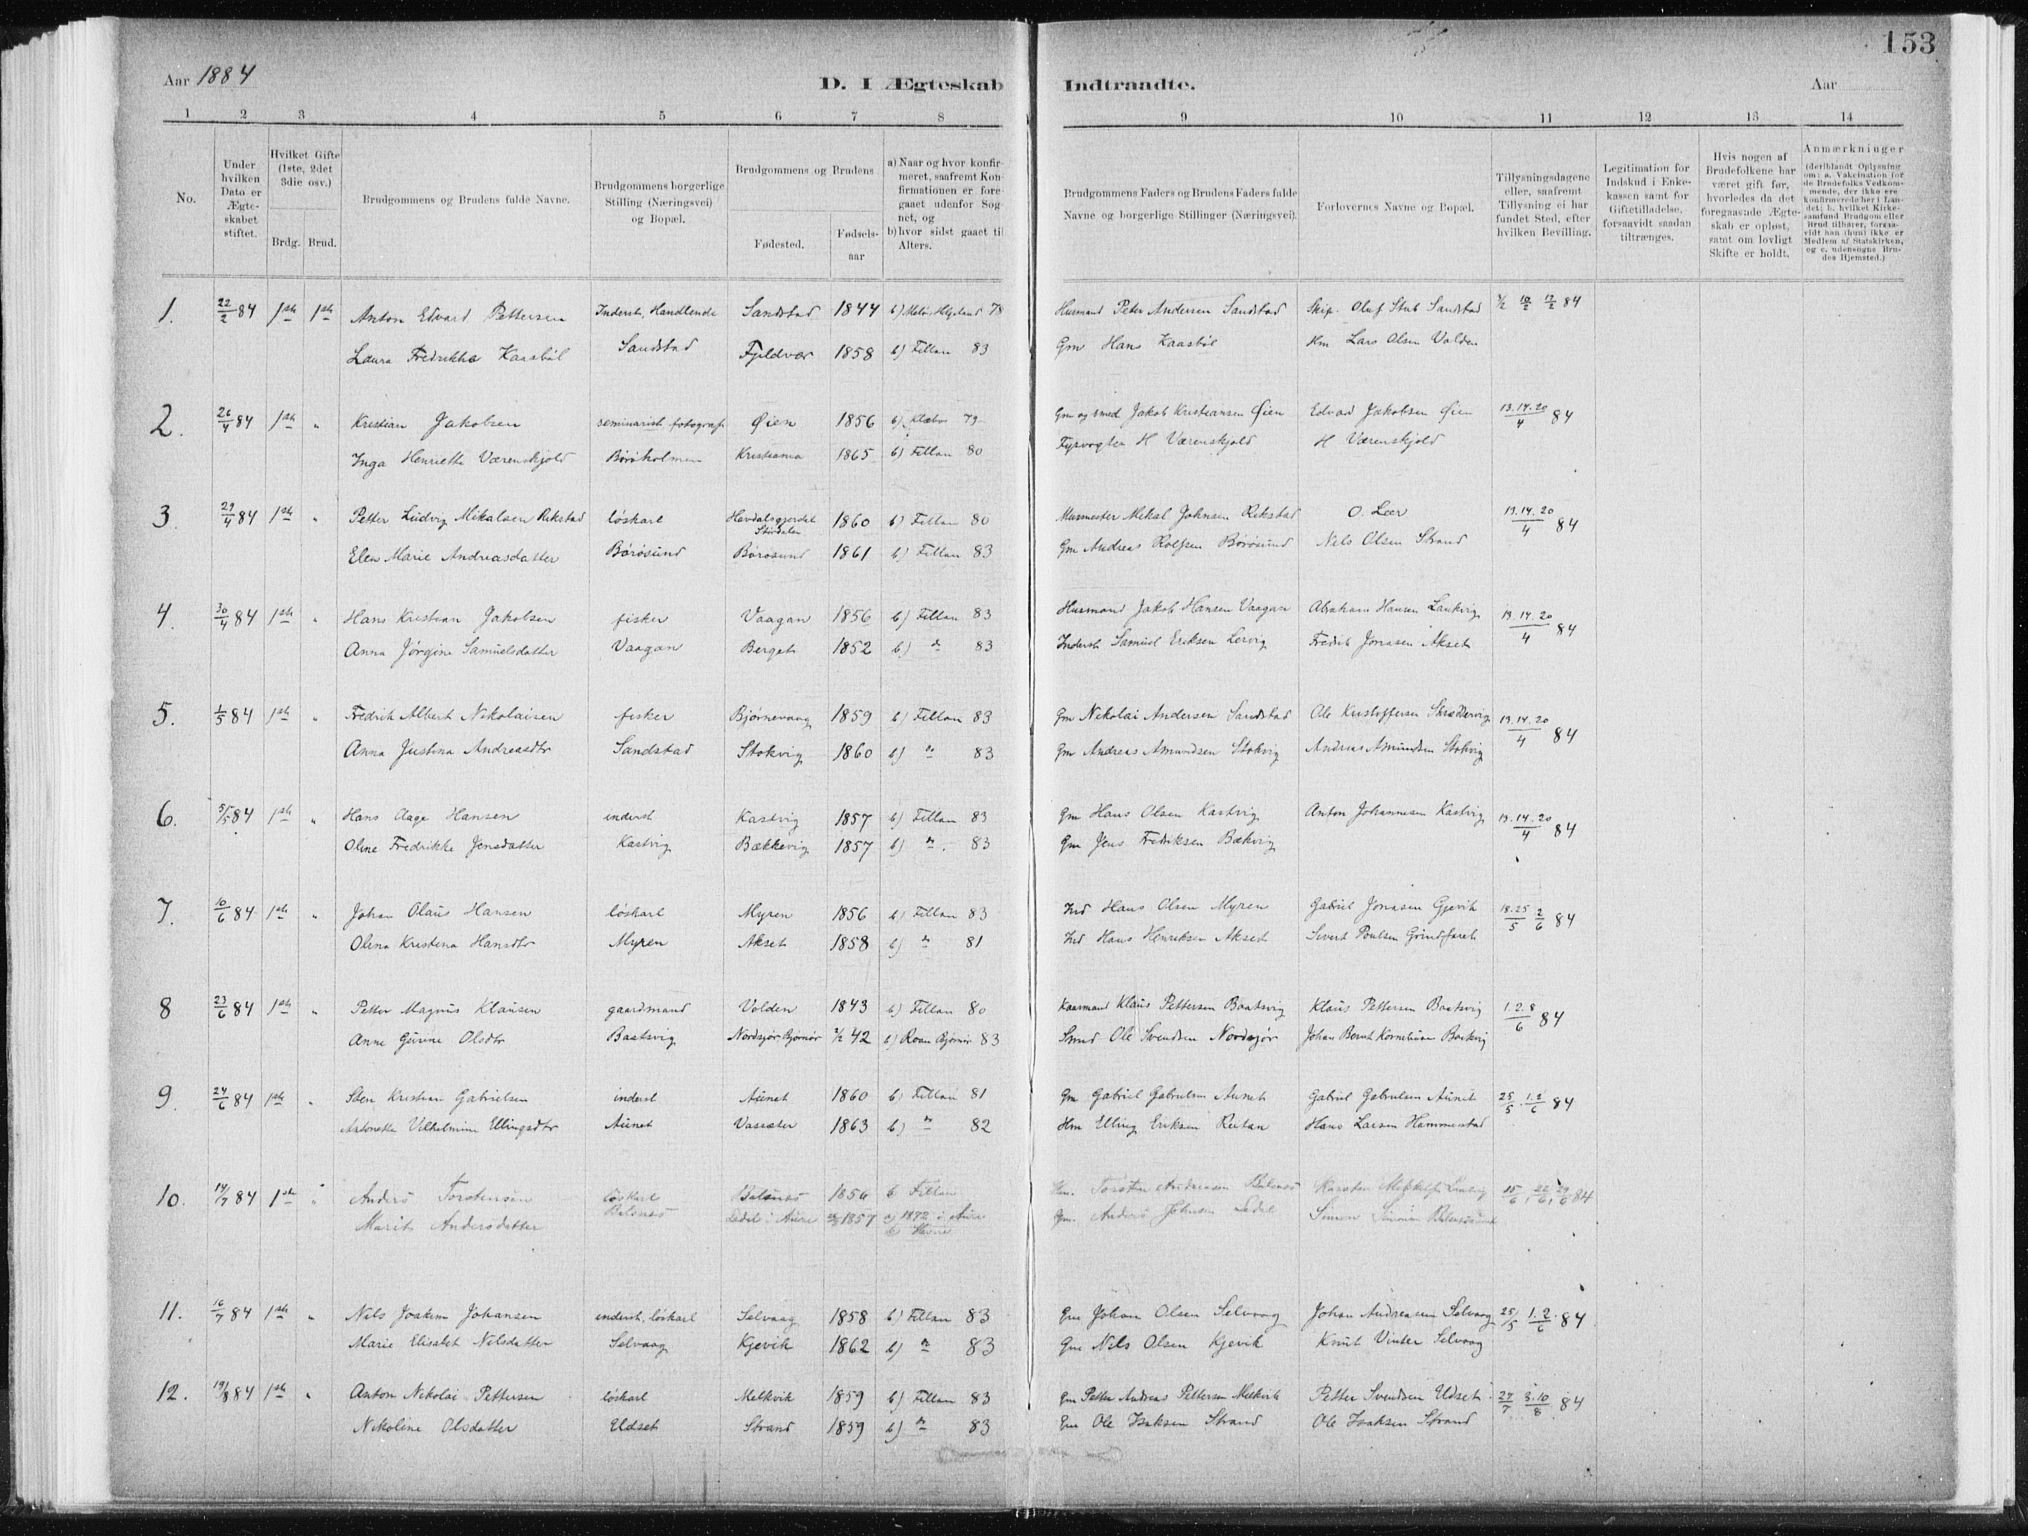 153
Aar 1884
D. I Ægteskab Indtraadte.
Aar
1 2 3 4 5 6 7 8 9 10 11 12 13 14
No.
Under hvilken Dato er Ægteskabet stiftet.
Hvilket Gifte (1ste, 2det 3die osv.)
Brdg. Brud.
Brudgommens og Brudens fulde Navne.
Brudgommens borgerlige Stilling (Næringsvei) og Bopæl.
Brudgommens og Brudens
Fødested.
Fødsels-aar
a) Naar og hvor konfirmeret, saafremt Konfirmationen er foregaaet udenfor Sognet, og
b) hvor sidst gaaet til Alters.
Brudgommens Faders og Brudens Faders fulde Navne og borgerlige Stillinger (Næringsvei).
Forlovernes Navne og Bopæl.
Tillysningsdagene eller, saafremt Tillysning ei har fundet Sted, efter hvilken Bevilling.
Legitimation for Indskud i Enkekassen samt for Giftetilladelse, forsaavidt saadan tiltrænges.
Hvis nogen af Brudefolkene har været gift før, hvorledes da det foregaaende Ægteskab er opløst, samt om lovligt Skifte er holdt.
Anmærkninger (deriblandt Oplysning om: a. Vakcination for de Brudefolks Vedkommende, der ikke ere konfirmerede her i Landet; b. hvilket Kirkesamfund Brudgom eller Brud tilhører, forsaavidt han (hun) ikke er Medlem af Statskirken, og c. udensogns Brudes Hjemsted.)
1. 22/2 84 1ste 1ste Anton Edvard Pettersen Inderst, Handlende Sandstad 1844 b) Helgeland 78 Husmand Peter Andersen Sandstad Skip. Oluf Stub Sandstad 3/2 10/2 17/2 84
Laura Fredrikke Kaasbøl Sandstad Fjeldvær 1858 b) Fillan 83 Gm Hans Kaasbøl Hm Lars Olsen Volden
2. 26/4 84 1ste " Kristian Jakobsen seminarist fotograf Øien 1856 b) Klæbo 79 Gm og smed Jakob Kristiansen Øien Edvad Jakobsen Øien 13.14.20/4 84
Inga HenrietteVærenskjold Børøholmen Kristiania 1865 b) Fillan 80 Fyrvogter H Værenskjold H Værenskjold
3. 29/4 84 1ste " Petter Ludvig Mikalsen Rikstad løskarl Stördalen 1860 b) Fillan 80 Murmester Mikal Johnsen Rikstad O. Leer 13.14.20/4 84
Elen Marie Andreasdatter Børøsund Børøsund 1861 b) Fillan 83 Gm Andreas Rolfsen Børøsund Nils Olsen Strand
4. 30/4 84 1ste " Hans Kristian Jakobsen fisker Vaagan 1856 b) Fillan 83 Husmand Jakob Hansen Vaagan Abraham Hansen Laukvig 13.14.20/4 84
Anna Jørgine Samuelsdatter Vaagan Berget 1852 b) do 83 Inderst Samuel Eriksen Lervig Fredrik Jonasen Akset
5. 1/5 84 1ste " Fredrik Albert Nikolaisen fisker Bjørnevaag 1859 b) Fillan 83 Gm Nikolai Andersen Sandstad Ole Kristoffersen Skreddervig 13.14.20/4 84
Anna Justina Andreasdtr Sandstad Stokvig 1860 b) do 83 Gm Andreas Amundsen Stokvig Andreas Amundsen Stokvig
6. 5/5 84 1ste " Hans Aage Hansen inderst Kastvig 1857 b) Fillan 83 Gm Hans Olsen Kastvig Anton Johannesen Kastvig 13.14.20/4 84
Oline Fredrikke Jensdatter Kastvig Bækkevig 1857 b) do 83 Gm Jens Fredriksen Bækvig
7. 10/6 84 1ste " Johan Olaus Hansen løskarl Myren 1856 b) Fillan 83 Ind Hans Olsen Myren Gabriel Jonasen Gjevik 18.25/5 2/6 84
Olina Kristina Hansdtr Myren Akset 1858 b) do 81 Ind Hans Henriksen Akset Sivert Poulsen Grindfaret
8 23/6 84 1ste " Petter Magnus Klausen gaardmand Volden 1843 b) Fillan 80 Kaarmand Klaus Pettersen Baatsvig Klaus Pettersen Baatsvig 1.2.8/6 84
Anne Gurine Olsdtr Bastsvig Nordsjør, Bjørnør 42 b) Roan Bjørnør 83 Strmd Ole Svendsen Nordsjør Johan Bernt Korneliusen Baatsvig
9. 24/6 84 1ste " Sten Kristian Gabrielsen inderst Aunet 1860 b) Fillan 81 Gm Gabriel Gabrielsen Aunet Gabriel Gabrielsen Aunet 25/5 . 1.2/6 84
Antonette Vilhelmine Ellingsdtr Aunet Vasæter 1863 b) do 82 Hm Elling Eriksen Reitan Hans Larsen Hammerstad
10. 14/7 84 1ste " Anders Torstensen løskarl Belsnæs 1856 b Fillan Hm. Torsten Andreasen Belsnæs 15/6, 22/6, 29/6 84
Marit Andersdatter Belsnæs Ledal i Aure 1857 a) 1872 i Aure b) Havne Gm. Anders Johnsen Ledal Simon Simonsen
11. 16/7 84 1ste " Nils Joakim Johansen inderst, løskarl Selvaag 1858 b) Fillan 83 Gm Johan Olsen Selvaag Johan Andreasen Selvaag 25/5 1.2/6 84
Marie Elisabet Nilsdatter Selvaag Kjevik 1862 b) do 83 Gm Nils Olsen Kjevik Knut Vinter Selvaag
12. 19/8 84 1ste " Anton Nikolai Pettersen løskarl Melkvik 1859 b) Fillan 83 Gm Petter Andreas Pettersen Melkvik Petter Svendsen Udset 27/7 3.10/8 84
Nikoline Olsdatter Udset Strand 1859 b) do 83 Gm Ole Isaksen Strand Ole Isaksen Strand